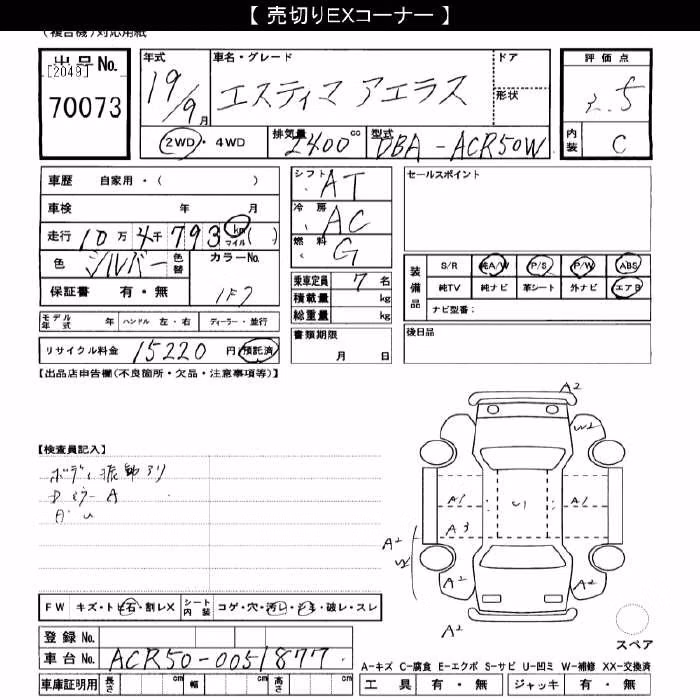 【 売切りEXコーナー 】
(複合機)対応用紙
出品No.
[2049]
70073
年式 車名・グレード ドア
19/9月 エスティマ アエラス 形状
2WD・4WD 排気量 2400cc 型式 DBA-ACR50W
評価点
3.5
内装 C
車歴 自家用・( )
車検 年 月
走行 10万4千793km マイル( )
色 シルバー 色替 カラーNo.
1F7
保証書 有・無
モデル年式 年 ハンドル 左・右 ディーラー・並行
リサイクル料金 15220円 預託済
シフト AT
冷房 AC
燃料 G
乗車定員 7名
積載量 kg
総重量 kg
書類期限
月 日
セールスポイント
装備品
S/R 純A/W P/S P/W ABS
純TV 純ナビ 革シート 外ナビ エアB
ナビ型番:
後日品
【出品店申告欄(不良箇所・欠品・注意事項等)】
【検査員記入】
ボディ
A
FW キズ・トビ石・割レX シート内装 コゲ・穴・汚レ・シミ・破レ・スレ
登録No.
車台No. ACR50-0051877
車庫証明用 長さ cm 幅 cm 高さ cm
A2
W2
A1
U1
A1
A3
A2
A2
A2
A2
スペア
A-キズ C-腐食 E-エクボ S-サビ U-凹ミ W-補修 XX-交換済
工具 有・無 ジャッキ 有・無